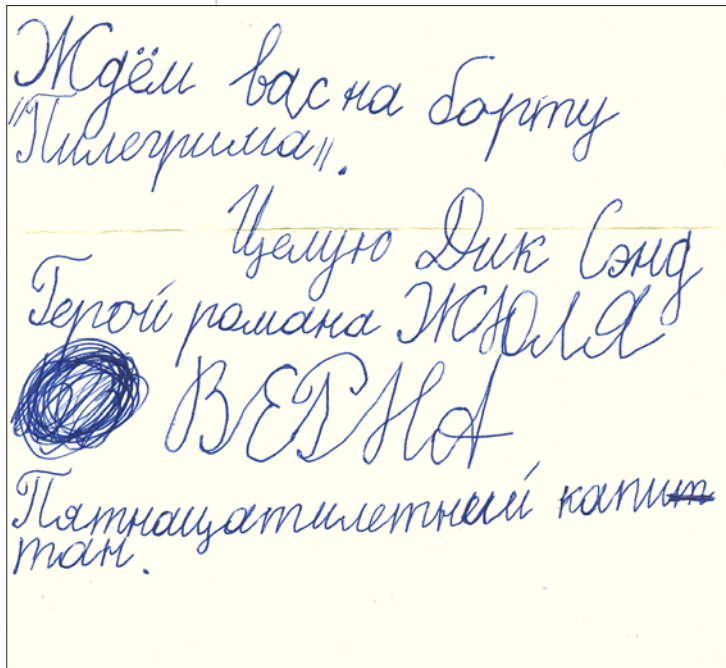 Ждём вас на борту
"Пилегрима".
Целую Дик Сэнд
Герой романа ЖЮЛЯ
ВЕРНА
Пятнацатилетний капи
тан.